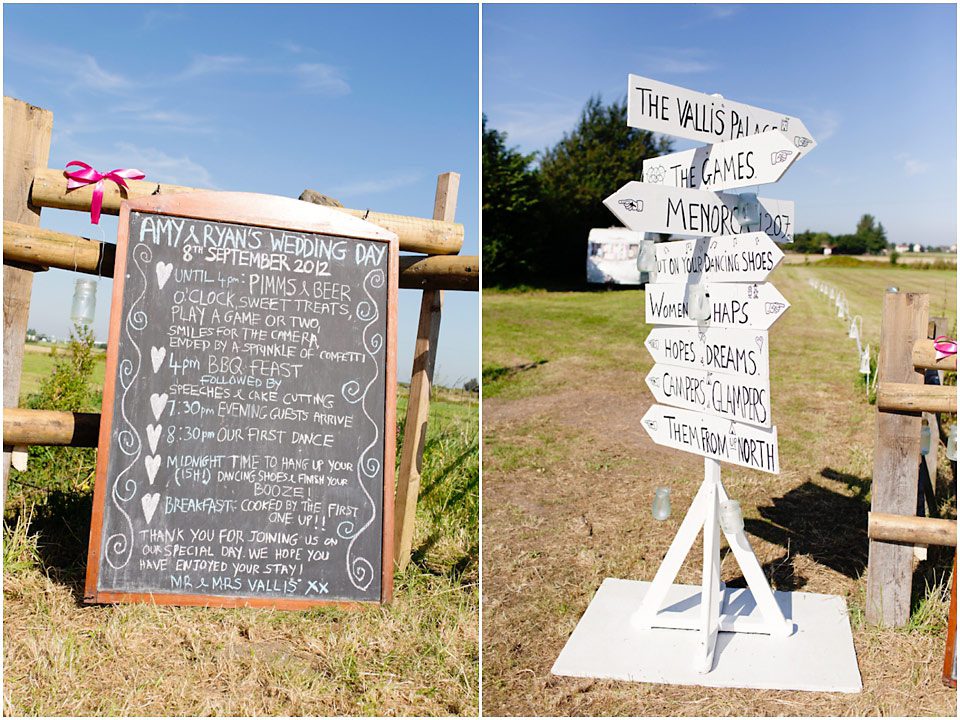 AMY & RYAN'S WEDDING DAY
8TH SEPTEMBER 2012
UNTIL 4pm: PIMMS & BEER
O'CLOCK, SWEET TREATS,
PLAY A GAME OR TWO,
SMILES FOR THE CAMERA
ENDED BY A SPRINKLE OF CONFETTI
4pm BBQ FEAST
FOLLOWED BY
SPEECHES & CAKE CUTTING
7:30pm EVENING GUESTS ARRIVE
8:30pm OUR FIRST DANCE
MIDNIGHT TIME TO HANG UP YOUR
(ISH!) DANCING SHOES & FINISH YOUR
BOOZE!
BREAKFAST: COOKED BY THE FIRST
ONE UP!!
THANK YOU FOR JOINING US ON
OUR SPECIAL DAY. WE HOPE YOU
HAVE ENJOYED YOUR STAY!
MR & MRS VALLIS XX
THE VALLIS PALACE
THE GAMES
MENORCA 1207.
PUT ON YOUR DANCING SHOES
WOMEN CHAPS
HOPES & DREAMS
CAMPERS & GLAMPERS
THEM FROM UP NORTH